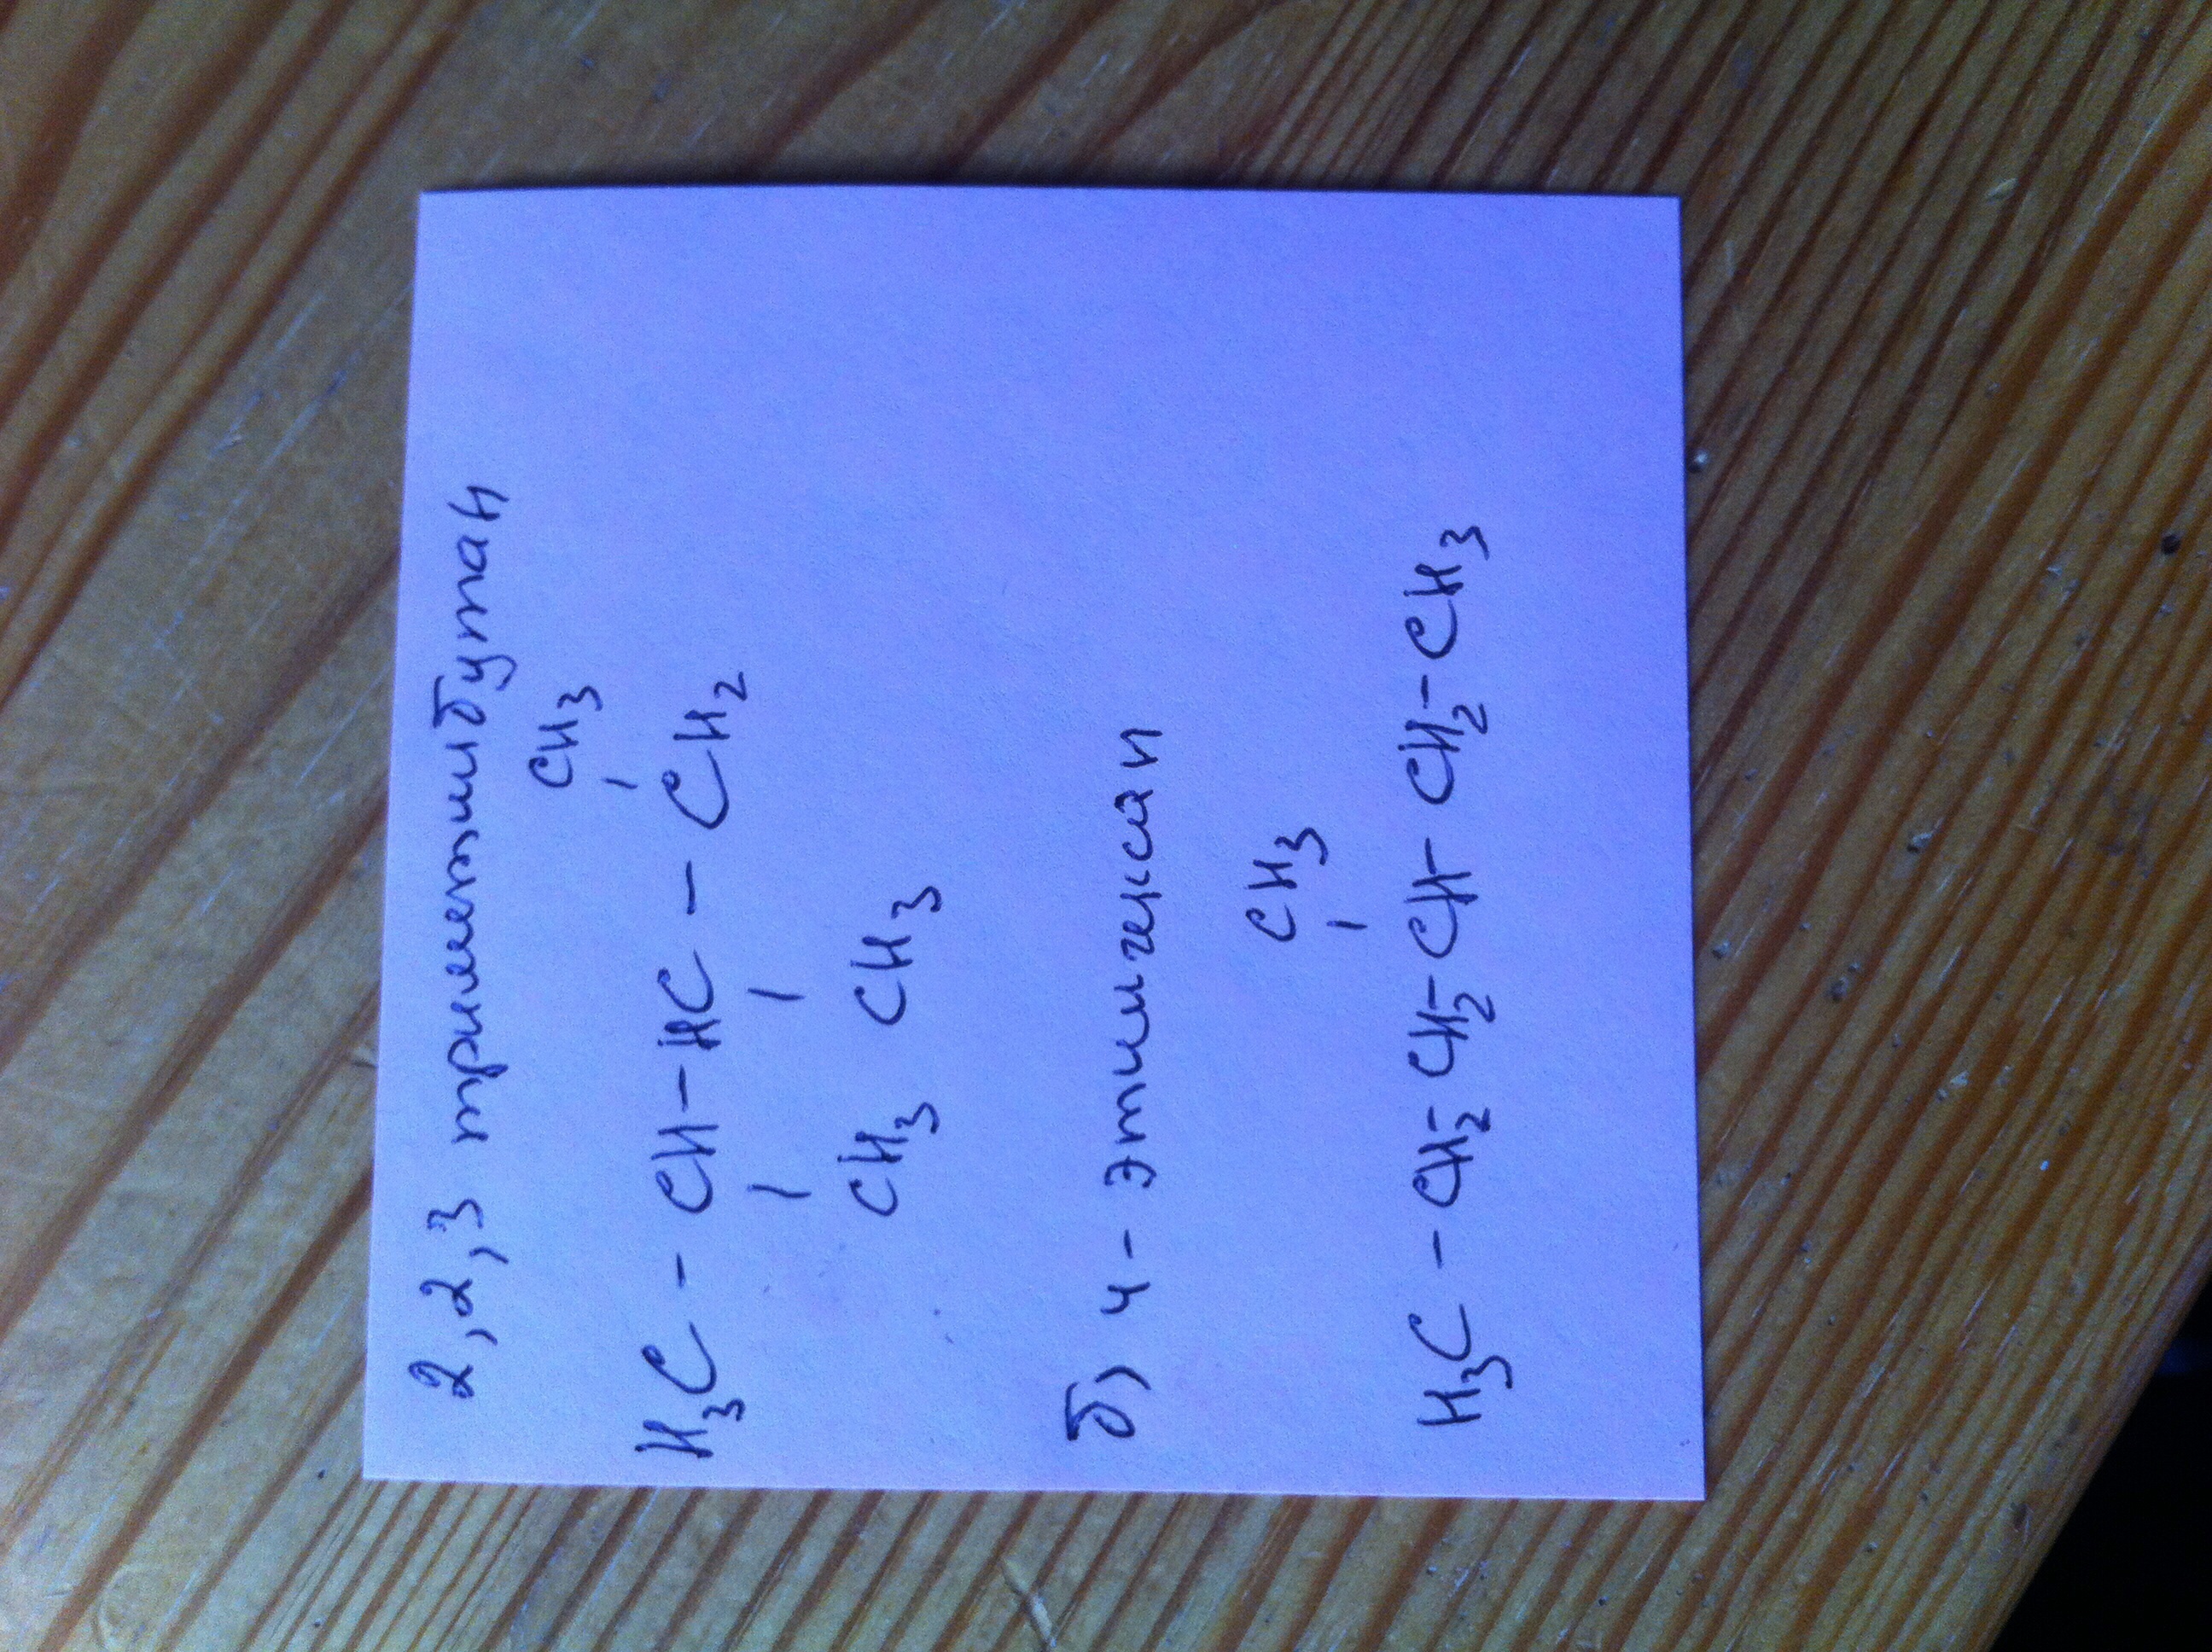 2,2,3 триметилбутан
CH3
H3C - CH - HC - CH2
CH3 CH3
б) 4 - этилгексан
CH3
H3C - CH2 - CH2 - CH - CH2 - CH3